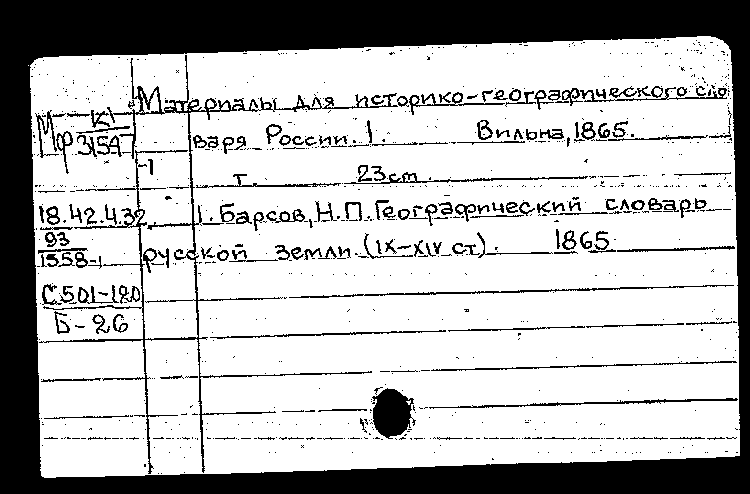 Материалы для историко-географического сло
К1
Мф 31547
-1
варя России. 1. Вильна, 1865.
т. 23cm
18.42.4.32. 1. Барсов, Н.П. Географический словарь
93
1558-1 русской земли (IX-XIV ст). 1865
С501-120
Б-26